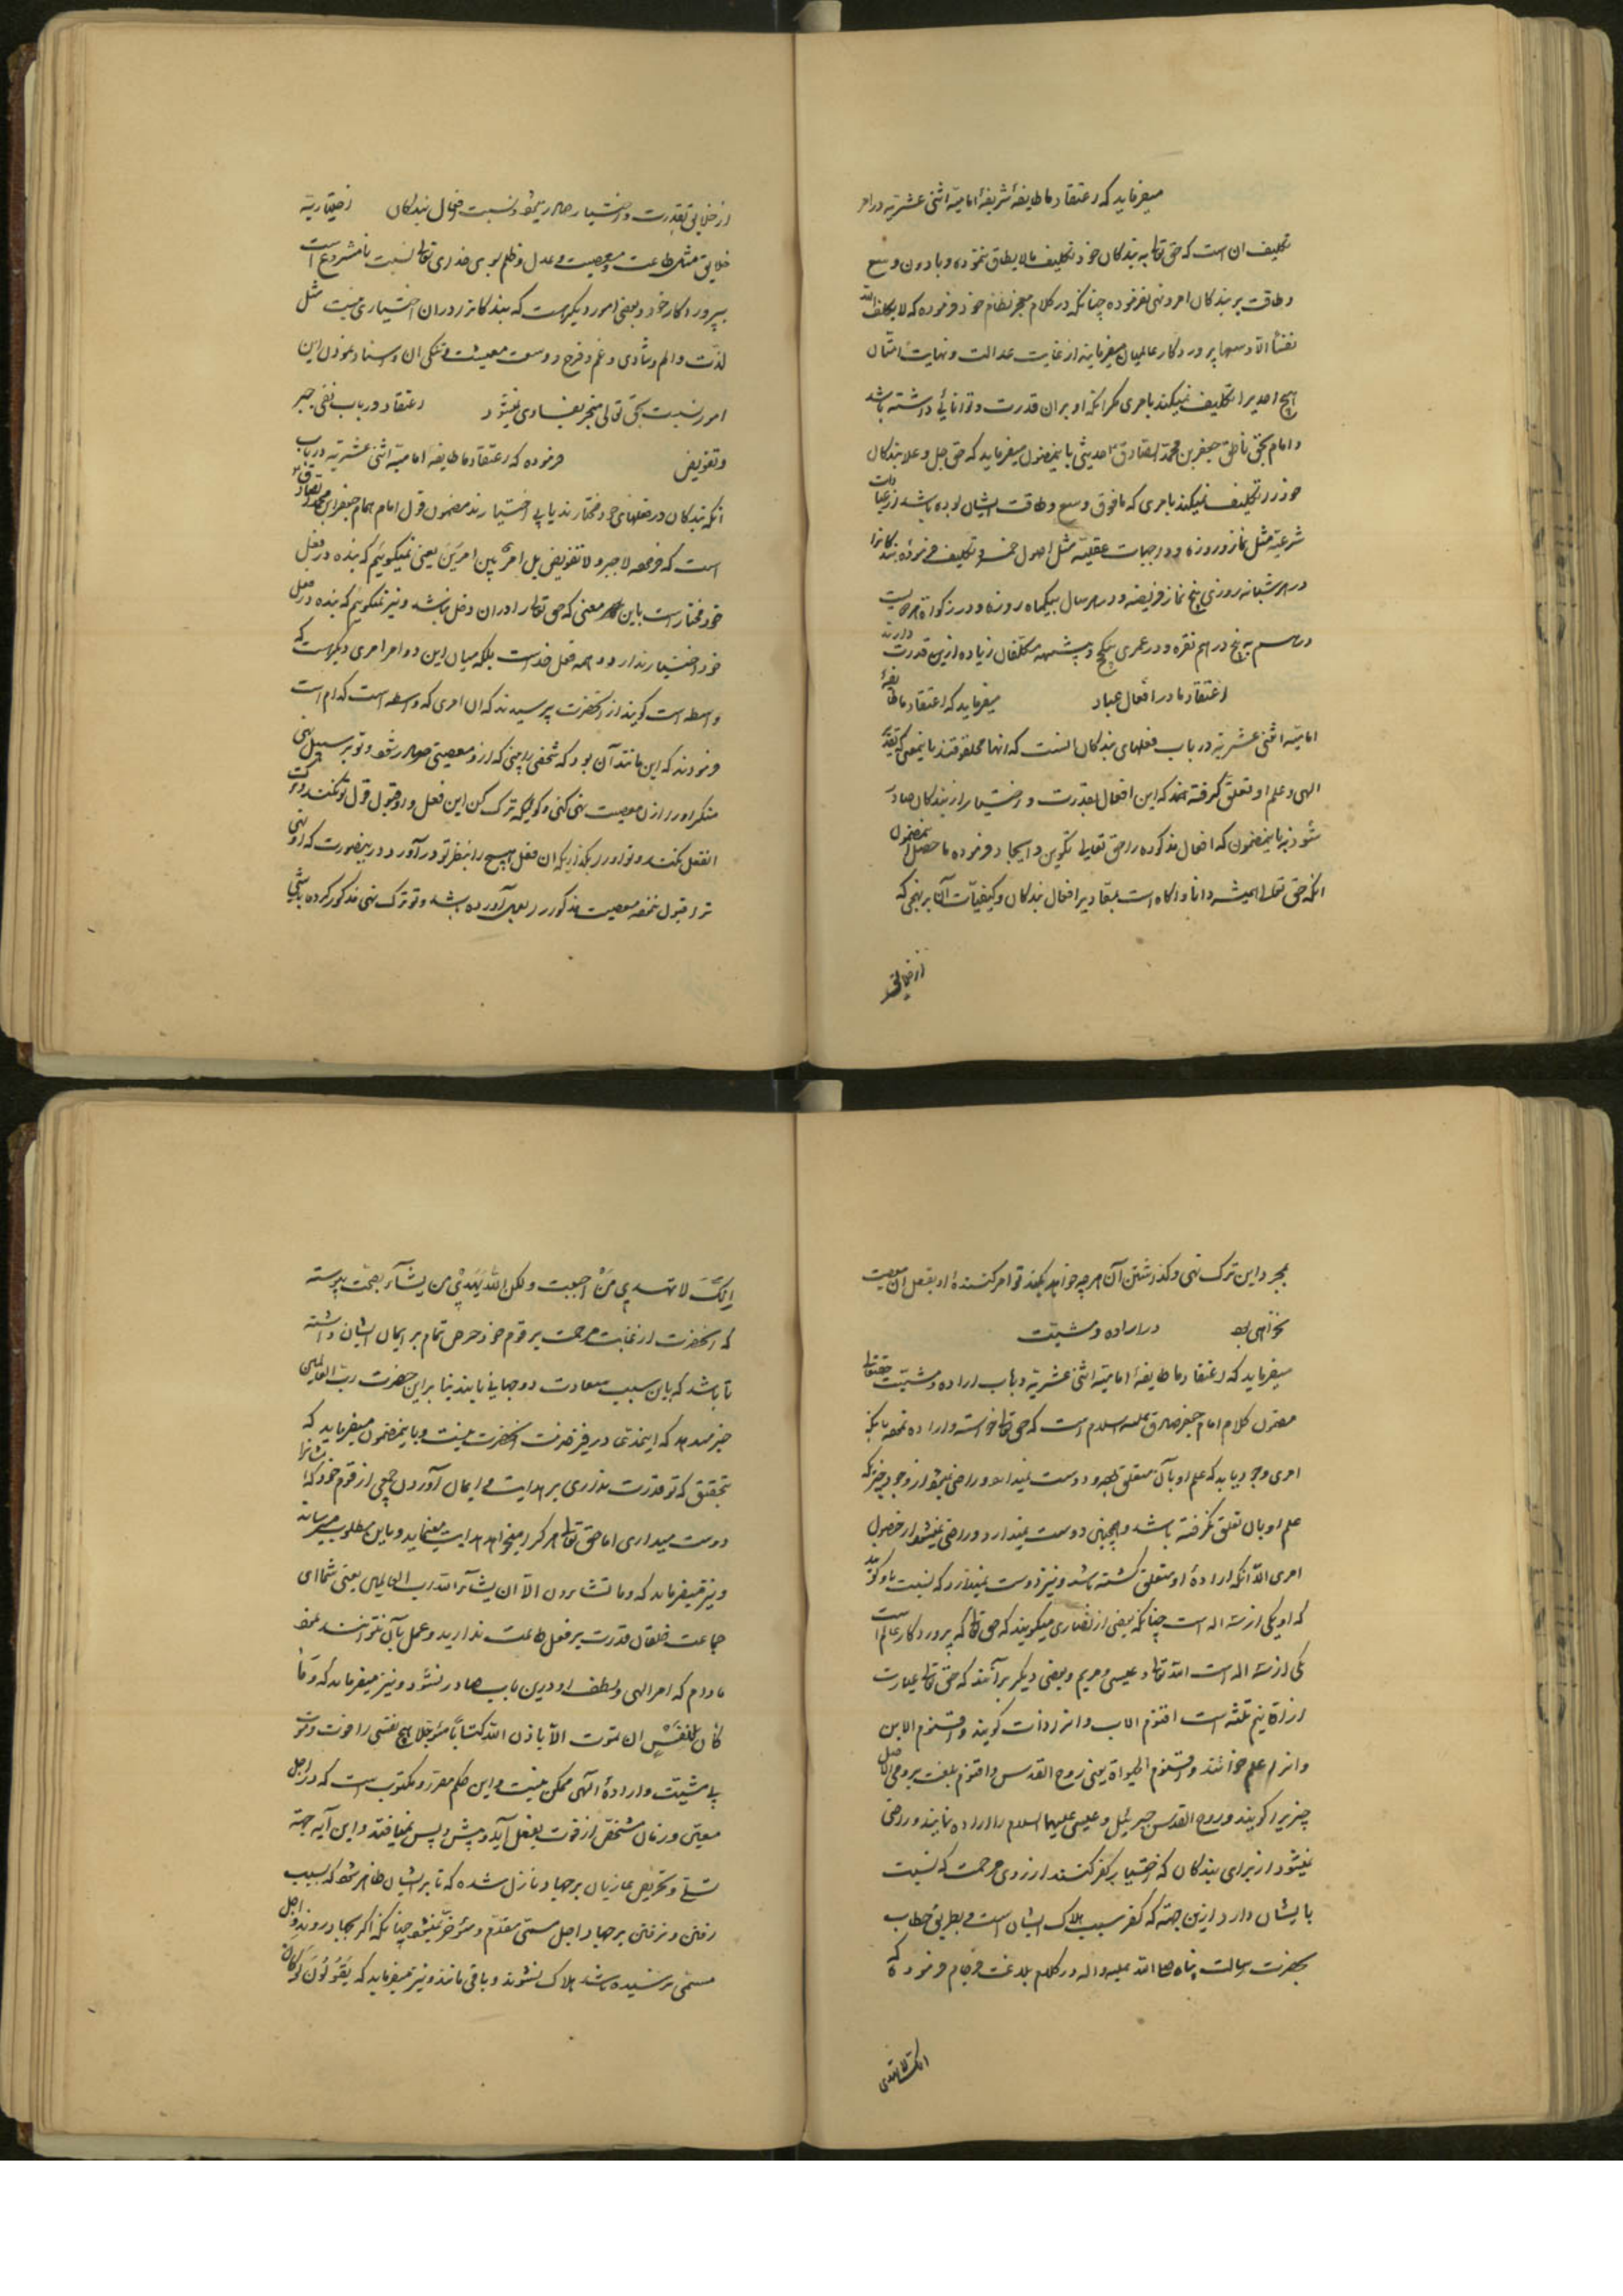 میفرماید که اعتقاد ما طایفهٔ شریفهٔ امامیّه اثنی عشریّه در امر
تکلیف ان است که حق تعالی به بندکان خود تکلیف مالایطاق ننموده و بادون وسع
و طاقت بر بندکان امر و نهی نفرموده چنانکه در کلام معجز نظام خود فرموده که لا یکلف الله
نفساً الّا وسعها پروردکار عالمیان میفرماید از غایت عدالت و نهایت
هیچ احدیرا تکلیف نمیکند بامری مکر انکه او بران قدرت و توانائی داشته باشد
و امام بحق ناطق جعفر بن محمّد الصّادق حدیثی باینمضمون میفرماید که حق جل و علا بندکان
خود را تکلیف نمیکند بامری که مافوق وسع و طاقت ایشان بوده باشد از عبادات
شرعیّه مثل نماز و روزه و واجبات عقلیّه مثل اصول خمسه و تکلیف فرموده بندکانرا
در هر شبانه روزی پنج نماز فریضه و در هر سال بیکماه روزه و در زکوة از هر دویست
درهم به پنج درهم نقره و در عمری بیکحج و مکلفان زیاده ازین قدرت دارند
اعتقاد ما در افعال عباد میفرماید که اعتقاد ما طایفهٔ
امامیّه اثنی عشریّه در باب فعلهای بندکان انست که انها مخلوقند باینمعنی که تقدیر
الهی و علم او تعلق کرفته که این افعال بقدرت و اختیار از بندکان صادر
شود نه باینمضمون که افعال مذکوره را حق تعالی تکوین و ایجاد فرموده ما حصل اینمضمون
انکه حق تعالی همیشه دانا و اکاه است بمقادیر افعال بندکان و کیفیّات آن بر نهجی که
از خلایق
از خلایق بقدرت و اختیار صادر میشود و نسبت افعال بندکان اختیاریّه
خلایق مثل طاعت و معصیت و عدل و ظلم بوی خدای تعالی نسبت نامشروع است
بپروردکار خود و بعضی امور دیکر هست که بندکانرا در ان اختیاری نیست مثل
لذّت و الم و شادی و غم و فرح و وسعت معیشت و تنکی ان و اسناد نمودن این
امور نسبت بحق تعالی منجر بفسادی نمیشود اعتقاد در باب نفی جبر
و تفویض فرموده که اعتقاد ما طایفه امامیّه اثنی عشریّه در باب
انکه بندکان در فعلهای خود مختارند یا بی اختیارند مضمون قول امام همام جعفر ابن محمد الصادق
است که فرموده لا جبر و لا تفویض بل امرٌ بین امرین یعنی نمیکوئیم که بنده در فعل
خود مختار است باین معنی که حق تعالی را در ان دخل نباشد و نیز نمیکوئیم که بنده در فعل
خود اختیار ندارد و همه فعل خداست بلکه میان این دو امر امری دیکر است که
واسطه است کویند از انحضرت پرسیدند که ان امری که واسطه است کدام است
فرمودند که این مانند آن بود که شخصی را بینی که از او معصیتی صادر شود و تو بر سبیل نهی
منکر او را از ان معصیت نهی کنی و کوئی که ترک کن این فعل را و قبول قول تو نکند و ترک
انفعل نکند و تو او را بکذاری که ان فعل قبیح را بنظر تو درآورد در اینصورت که او نهی
ترا قبول ننموده معصیت مذکور را بعمل آورده باشد و تو ترک نهی مذکور کرده باشی
بمجرد این ترک نهی و کذاشتن آن هر چه خواهد بکند تو امر کنندهٔ او بفعل ان معصیت
نخواهی بود در اراده و مشیّت
میفرماید که اعتقاد ما طایفهٔ امامیّه اثنی عشریّه در باب اراده و مشیّت حقتعالی
مضمون کلام امام جعفر صادق علیه السلام است که حق تعالی خواسته و اراده نموده بانکه
امری وجود نیابد که علم او بآن متعلق نبود و دوست نمیدارد و راضی نمیشود از وجود چیزیکه
علم او بان تعلق نکرفته باشد و همچنین دوست نمیدارد و راضی نمیشود از حصول
امری الّا انکه ارادهٔ او متعلق کشته باشد و نیز دوست نمیدارد که نسبت باو کویند
که او یکی از سه اله است چنانکه بعضی از نصاری میکویند که حق تعالی که پروردکار عالم است
یکی از سه اله است الله تعالی و عیسی و مریم و بعضی دیکر برآنند که حق تعالی عبارت
از اقانیم ثلثه است اقنوم الاب و انرا ذات کویند و اقنوم الابن
و انرا علم خوانند و اقنوم الحیواة یعنی روح القدس و اقنوم بلغت رومی اصل
چیزیرا کویند و روح القدس جبرئیل و عیسی علیهما السلام را اراده نمایند و راضی
نمیشود از برای بندکان که اختیار کفر کنند از روی مرحمت که نسبت
بایشان دارد ازین جهة که کفر سبب هلاک ایشان است و بطریق خطاب
بحضرت رسالت پناه صلی الله علیه و اله در کلام بلاغت فرجام فرموده که
انک لا تهدی
اِنَّکَ لا تهدی مَنْ احببت و لکن اللّه یَهدِیْ من یشآء بصحّت پیوسته
که انحضرت از غایت مرحمت بر قوم خود حرص تمام بر ایمان ایشان داشته
تا باشد که باین سبب سعادت دو جهانی یابند بنا براین حضرت ربّ العالمین
خبر میدهد که اینمدّعی در فیض قدرت انحضرت نیست و باینمضمون میفرماید که
بتحقیق که تو قدرت نداری بر هدایت و ایمان آوردن جمعی از قوم خود که ایشانرا
دوست میداری اما حق تعالی هر کرا میخواهد هدایت مینماید و باین مطلوب میرساند
و نیز میفرماید که و ما تشاءون الّا ان یشآء اللّه رب العالمین یعنی شما ای
جماعت خلقان قدرت بر فعل طاعت ندارید و عمل بآن نتوانند نمود
مادام که امر الهی و لطف او درین باب صادر نشود و نیز میفرماید که وَ مٰا
کٰانَ لِنَفْسٍ ان تموت الّا باذن اللّه کتاباً مُؤَجَّلا هیچ نفسی را فوت و موت
بی مشیّت و ارادهٔ الهی ممکن نیست و این حکم مقرر و مکتوب است که در اجل
معیّن و زمان مشخّص از قوت بفعل آید و پیش و پس نمیافتد و این آیه جهة
تسلّی و تحریص غازیان بر جهاد نازل شده که تا بر ایشان ظاهر شود که بسبب
رفتن و نرفتن بر جهاد اجل مسمّی مقدّم و مؤخّر نمیشود چنانکه اکر بجهاد روند و اجل
مسمّی نرسیده باشد هلاک نشوند و باقی مانند و نیز میفرماید که یَقُولُونَ لَوْ کٰانَ